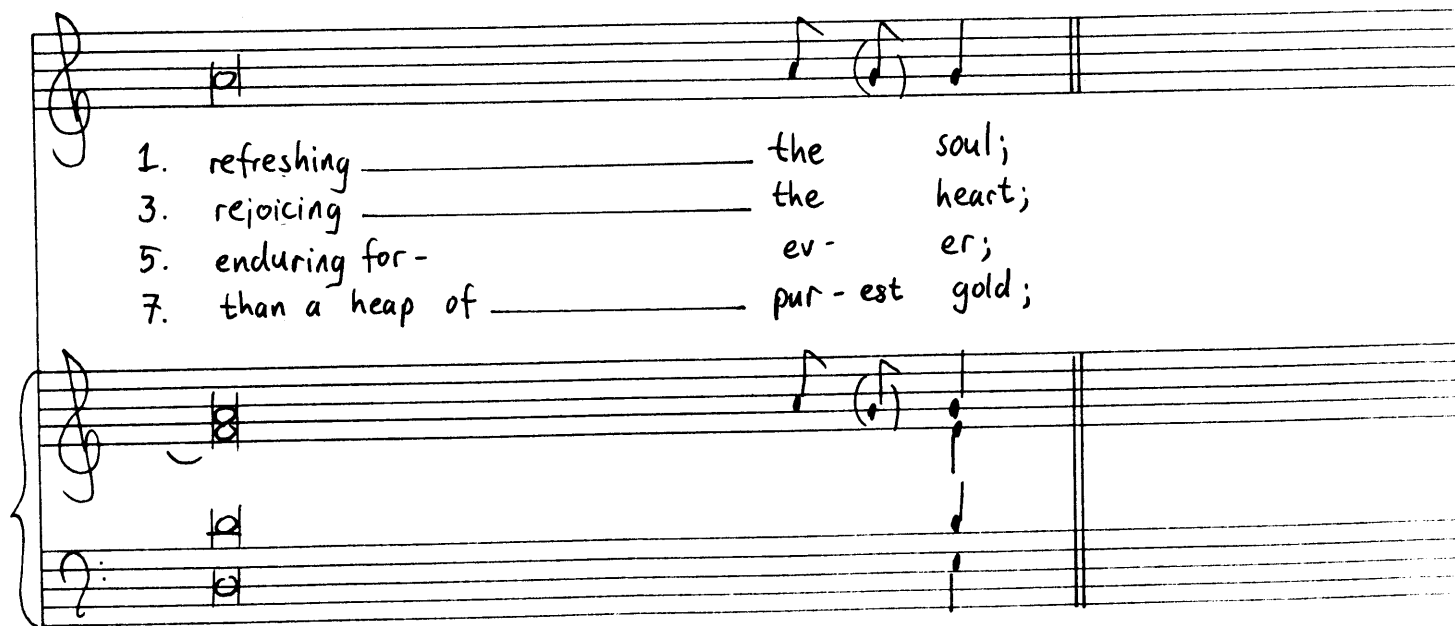 1. refreshing ________ the soul;
3. rejoicing ________ the heart;
5. enduring for- ev- er;
7. than a heap of ________ pur-est gold;